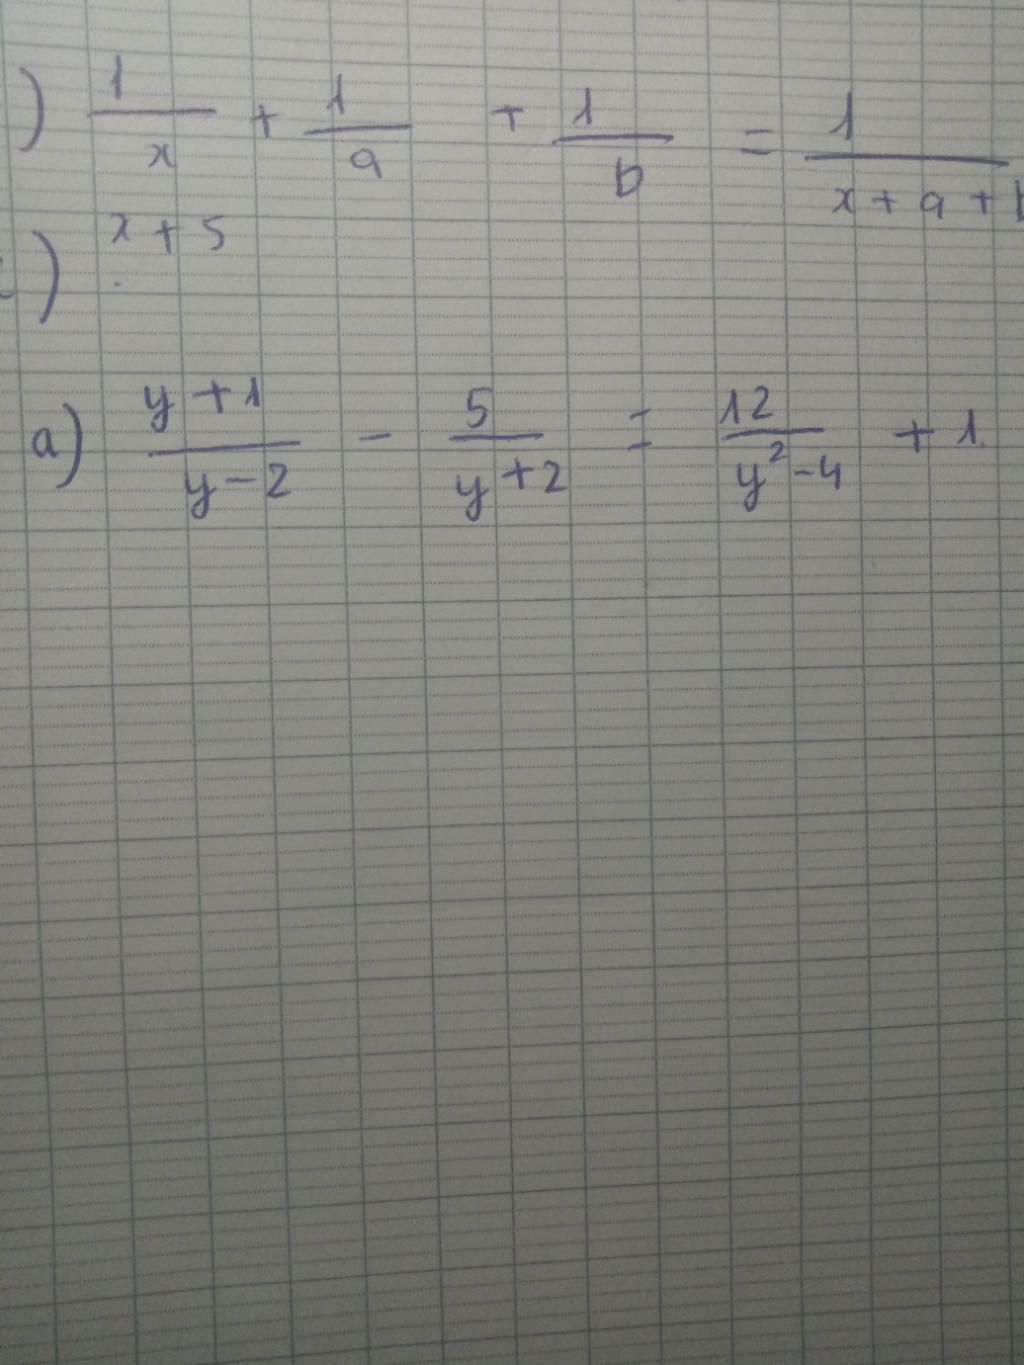 ) 1/x + 1/a + 1/b = 1/(x + a + b
) x + 5
a) (y + 1)/(y - 2) - 5/(y + 2) = 12/(y² - 4) + 1